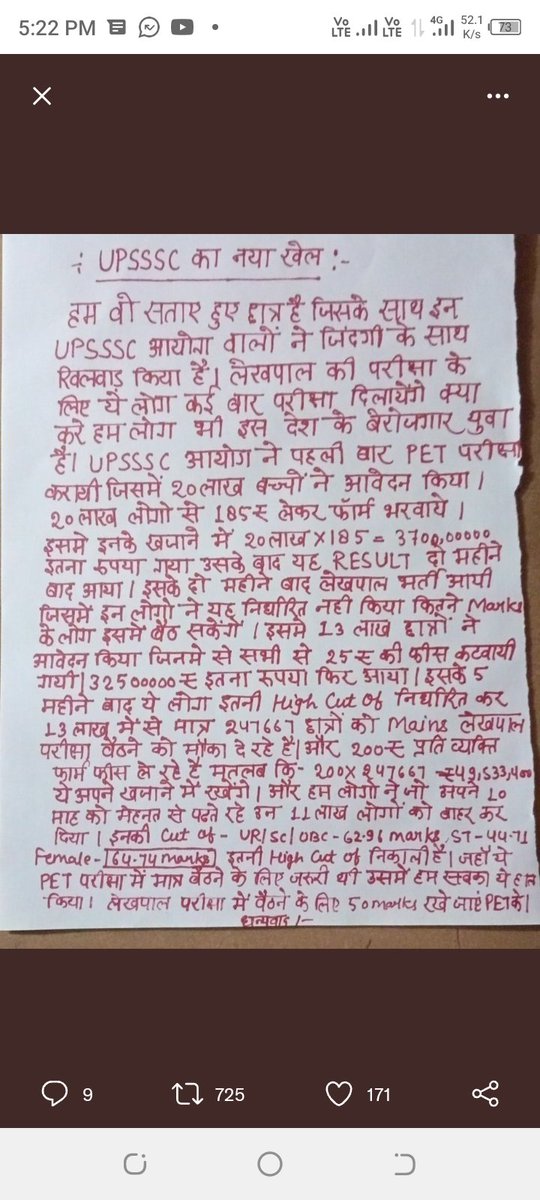 5:22 PM
Vo LTE Vo LTE 4G 52.1 K/s 73
-: UPSSSC का नया खेल :-
हम वो सताए हुए छात्र है जिसके साथ इन
UPSSSC आयोग वालों ने जिंदगी के साथ
खिलवाड़ किया है। लेखपाल की परीक्षा के
लिए ये लोग कई बार परीक्षा दिलायेंगे क्या
करे हम लोग भी इस देश के बेरोजगार युवा
है। UPSSSC आयोग ने पहली बार PET परीक्षा
करायी जिसमें 20लाख बच्चों ने आवेदन किया।
20लाख लोगो से 185₹ लेकर फॉर्म भरवाये।
इसमे इनके खजाने में 20लाख X185 = 3700,00000
इतना रुपया गया उसके बाद यह RESULT दो महीने
बाद आया। इसके दो महीने बाद लेखपाल भर्ती आयी
जिसमें इन लोगो ने यह निर्धारित नही किया कितने Marks
के लोग इसमें बैठ सकेंगे। इसमे 13 लाख छात्रों ने
आवेदन किया जिनमे से सभी से 25₹ की फीस कटवायी
गयी। 32500000₹ इतना रुपया फिर आया। इसके 5
महीने बाद ये लोग इतनी High Cut of निर्धारित कर
13लाख में से मात्र 247667 छात्रों को Mains लेखपाल
परीक्षा बैठने को मौका दे रहे है। और 200₹ प्रति व्यक्ति
फॉर्म फीस ले रहे है मतलब कि- 200X 247667 =₹49,533,400
ये अपने खजाने में रखेंगे। और हम लोगो ने जो अपने 10
माह को मेहनत से पढते रहे उन 11 लाख लोगों को बाहर कर
दिया। इनकी Cut of - UR/SC/OBC -62.96 marks, ST -44.71
Female-64.74 marks इतनी High Cut of निकाली है। जहाँ ये
PET परीक्षा में मात्र बैठने के लिए जरूरी थी उसमें हम सबका ये
किया। लेखपाल परीक्षा में बैठने के लिए 50 marks रखे जाएं PET के।
धन्यवाद :-
9 725 171